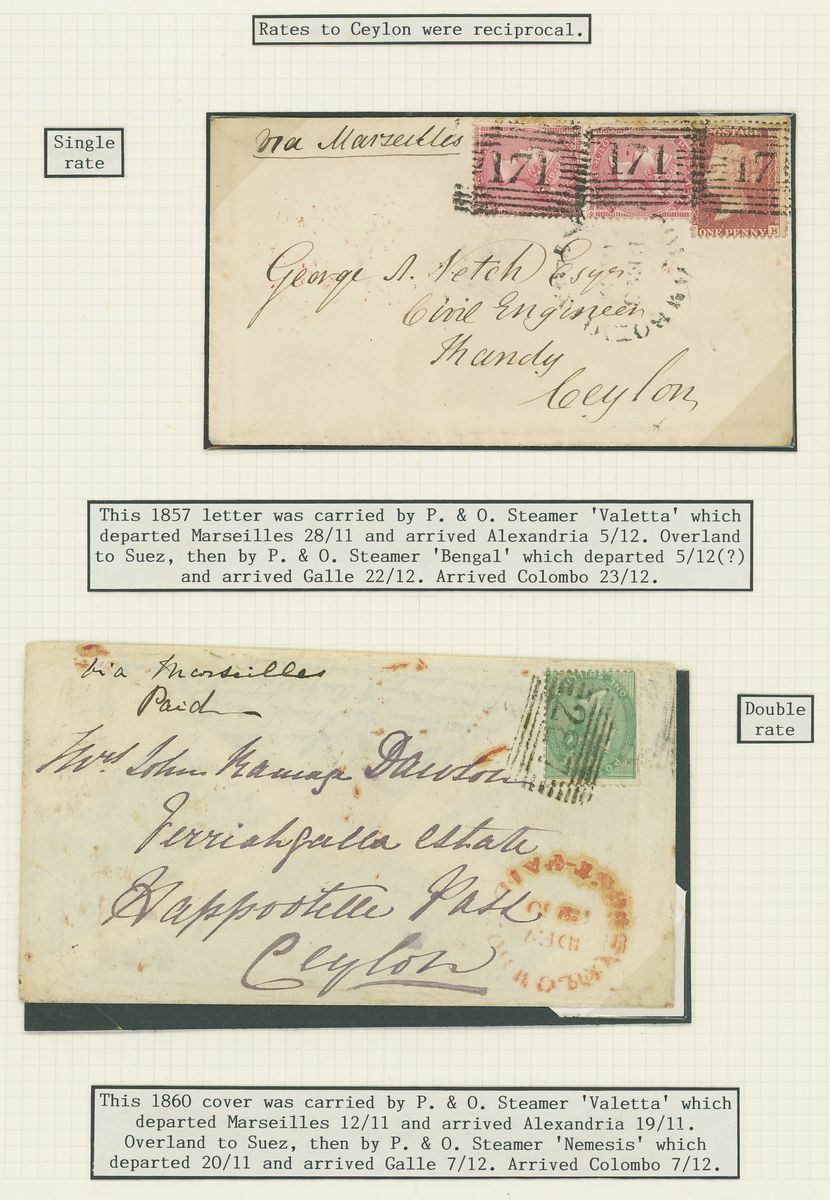 Rates to Ceylon were reciprocal.
Single
rate
via Marseilles
171 171 17
POSTAGE
ONE PENNY B
George A. Netch Esqr
Civil Engineer
Khandy
Ceylon
This 1857 letter was carried by P. & O. Steamer 'Valetta' which
departed Marseilles 28/11 and arrived Alexandria 5/12. Overland
to Suez, then by P. & O. Steamer 'Bengal' which departed 5/12(?)
and arrived Galle 22/12. Arrived Colombo 23/12.
via Marseilles
Paid
ONE SHILLING
Double
rate
John Ramage Dawson
Verriahgalla estate
Happootelle Pass
Ceylon
This 1860 cover was carried by P. & O. Steamer 'Valetta' which
departed Marseilles 12/11 and arrived Alexandria 19/11.
Overland to Suez, then by P. & O. Steamer 'Nemesis' which
departed 20/11 and arrived Galle 7/12. Arrived Colombo 7/12.